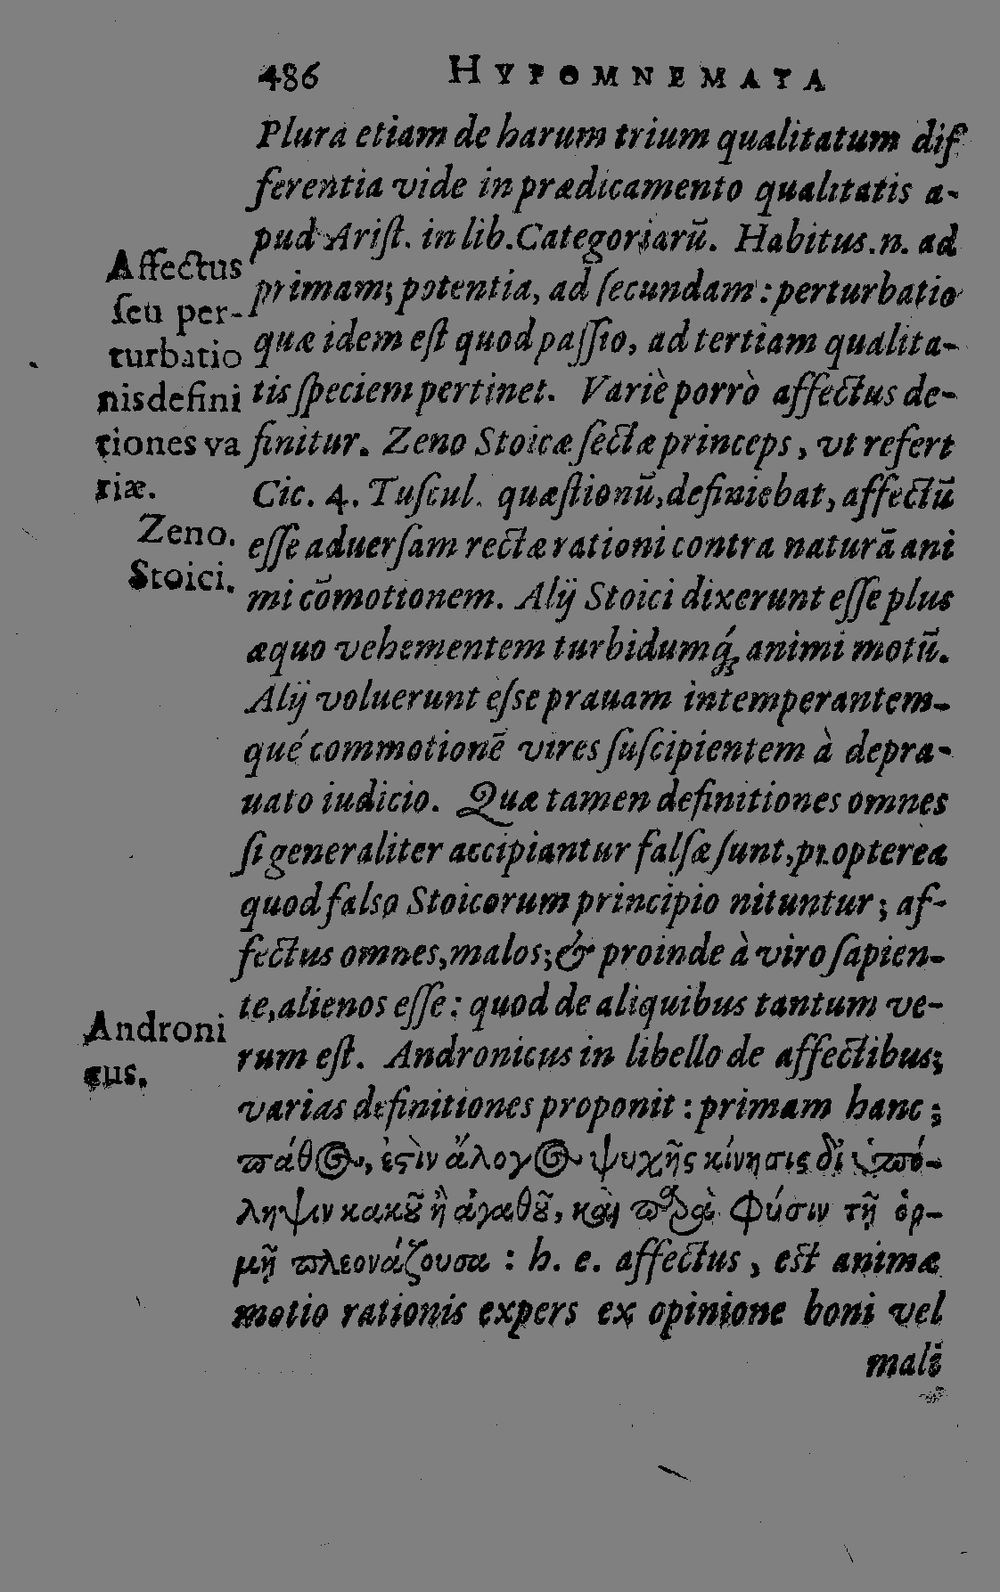 486 HYPOMNEMATA
Plura etiam de harum trium qualitatum dif
ferentia vide in prædicamento qualitatis a-
pud Arist. in lib. Categoriarū. Habitus .n. ad
primam; potentia, ad secundam: perturbatio
quæ idem est quod passio, ad tertiam qualita-
tis speciem pertinet. Variè porrò affectus de-
finitur. Zeno Stoicæ sectæ princeps, vt refert
Cic. 4. Tuscul. quæstionū, definiebat, affectū
esse aduersam rectæ rationi contra naturā ani
mi cōmotionem. Alij Stoici dixerunt esse plus
æquo vehementem turbidumq́; animi motū.
Alij voluerunt esse prauam intemperantem-
qué commotionē vires suscipientem à depra-
uato iudicio. Quæ tamen definitiones omnes
si generaliter accipiantur falsæ sunt, propterea
quod falso Stoicorum principio nituntur; af-
fectus omnes, malos; & proinde à viro sapien-
te, alienos esse: quod de aliquibus tantum ve-
rum est. Andronicus in libello de affectibus;
varias definitiones proponit: primam hanc;
πάθος, ἐστὶν ἄλογος ψυχῆς κίνησις δι' ὑπό-
ληψιν κακοῦ ἢ ἀγαθοῦ, καὶ παρὰ φύσιν τῇ ὁρ-
μῇ πλεονάζουσα: h. e. affectus, est animæ
motio rationis expers ex opinione boni vel
mali
Affectus
seu per-
turbatio
nis defini
tiones va
riæ.
Zeno.
Stoici.
Androni
cus.